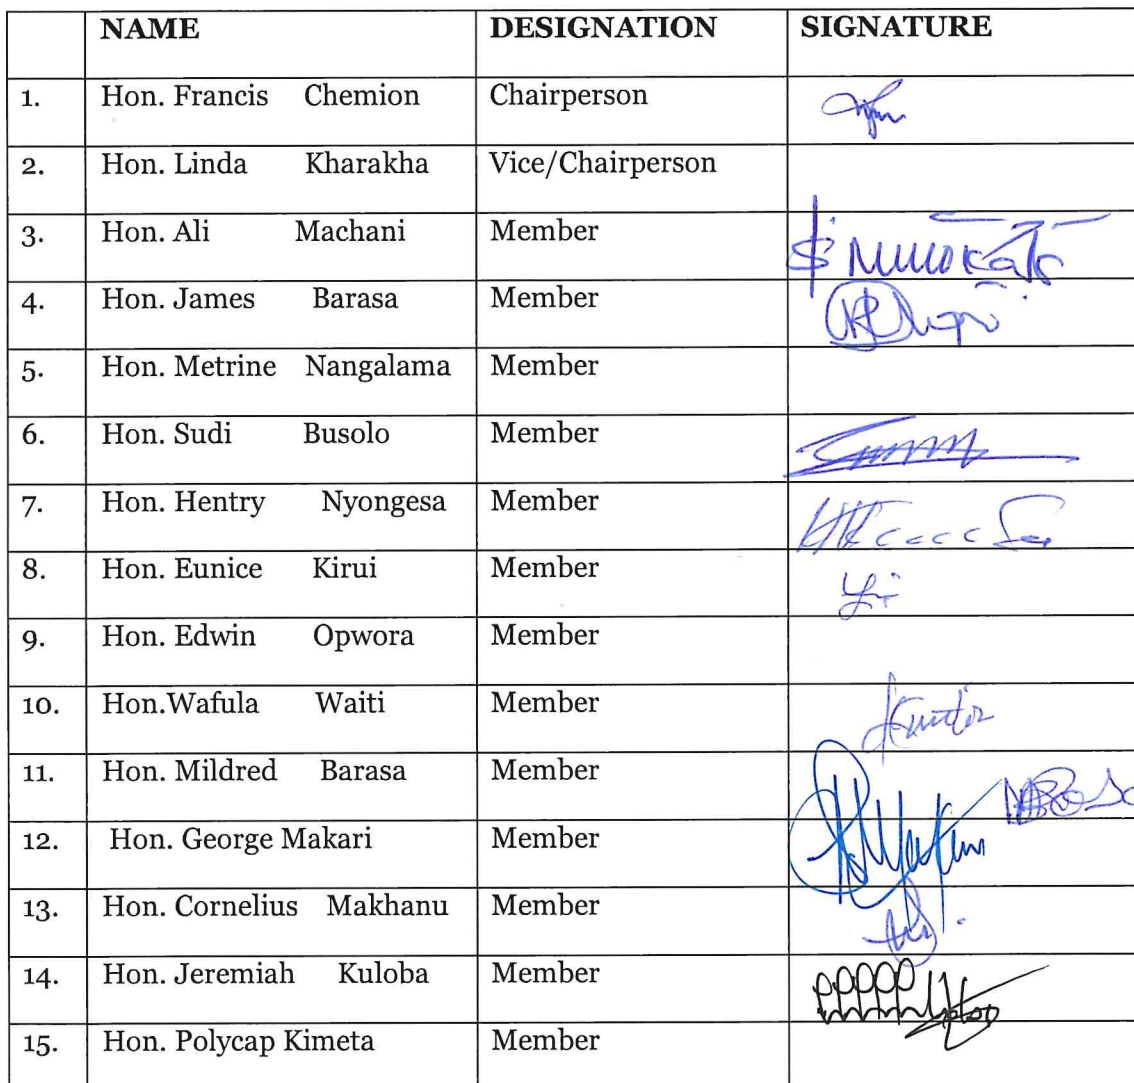 NAME DESIGNATION SIGNATURE
1. Hon. Francis Chemion Chairperson
2. Hon. Linda Kharakha Vice/Chairperson
3. Hon. Ali Machani Member
4. Hon. James Barasa Member
5. Hon. Metrine Nangalama Member
6. Hon. Sudi Busolo Member
7. Hon. Hentry Nyongesa Member
8. Hon. Eunice Kirui Member
9. Hon. Edwin Opwora Member
10. Hon.Wafula Waiti Member
11. Hon. Mildred Barasa Member
12. Hon. George Makari Member
13. Hon. Cornelius Makhanu Member
14. Hon. Jeremiah Kuloba Member
15. Hon. Polycap Kimeta Member